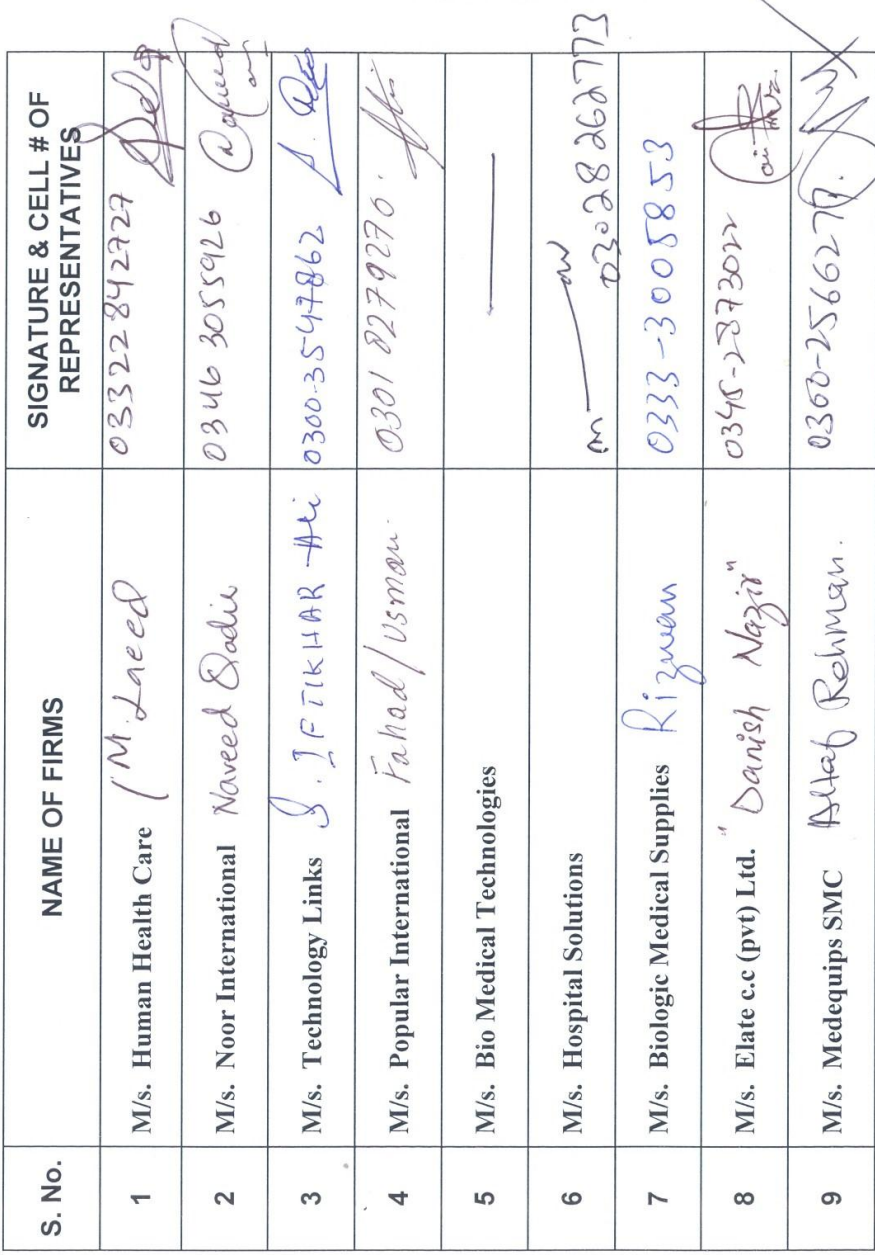 S. No. NAME OF FIRMS SIGNATURE & CELL # OF
REPRESENTATIVES
1 M/s. Human Health Care (M. Saeed 03322842727
2 M/s. Noor International Naveed Qadir 0346 3055926
3 M/s. Technology Links S. IFTIKHAR Ali 0300-3547862
4 M/s. Popular International Fahad / Usman 0301 8279276
5 M/s. Bio Medical Technologies
6 M/s. Hospital Solutions
03028262773
7 M/s. Biologic Medical Supplies Rizwan 0333-3005853
8 M/s. Elate c.c (pvt) Ltd. "Danish Nazir" 0345-2373022
9 M/s. Medequips SMC Altaf Rehman.